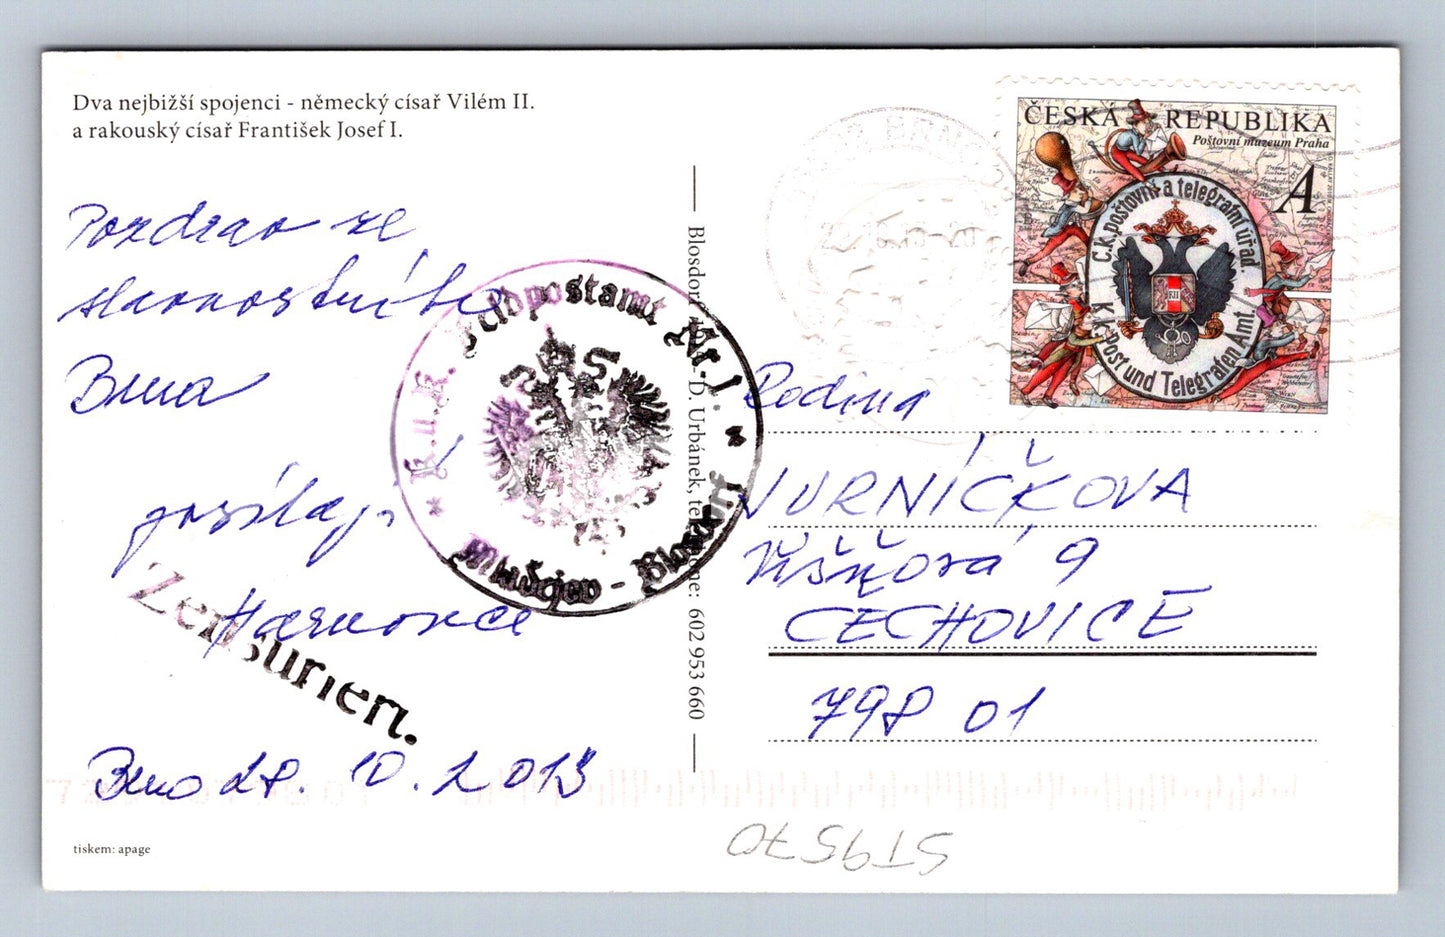 Dva nejbižší spojenci - německý císař Vilém II.
a rakouský císař František Josef I.
Pozdrav ze
slavnostního
Brna
posílají
Brno 28. 10. 2013
tiskem: apage
K.u.K. Feldpostamt Nr. 1.
Mladějov - Blosdorf
Zensuriert.
D. Urbánek, telefone: 602 953 660
ČESKÁ REPUBLIKA
Poštovní muzeum Praha
A
C.k. poštovní a telegrafní úřad.
K.k. Post und Telegrafen Amt.
Rodina
VURNÍČKOVA
Višňová 9
ČECHOVICE
798 01
ST9570